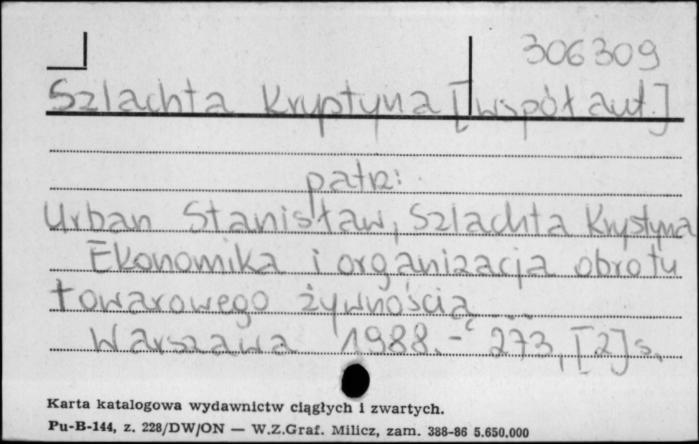 306309
Szlachta Krystyna [współaut.]
patrz:
Urban Stanisław, Szlachta Krystyna
Ekonomika i organizacja obrotu
towarowego żywnością ...
Warszawa 1988. - 273, [2] s.
Karta katalogowa wydawnictw ciągłych i zwartych.
Pu-B-144, z. 228/DW/ON — W.Z.Graf. Milicz, zam. 388-86 5.650.000